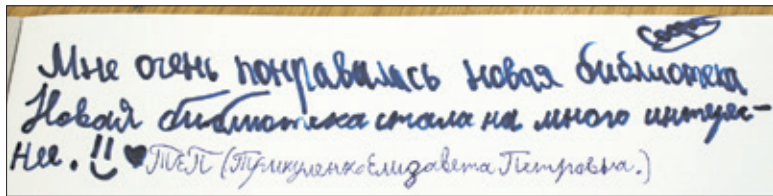 Мне очень понравилась новая библиотека
Новая библиотека стала на много интерес-
нее. !! ♥ ТЕП (Трикуленко Елизавета Петровна.)